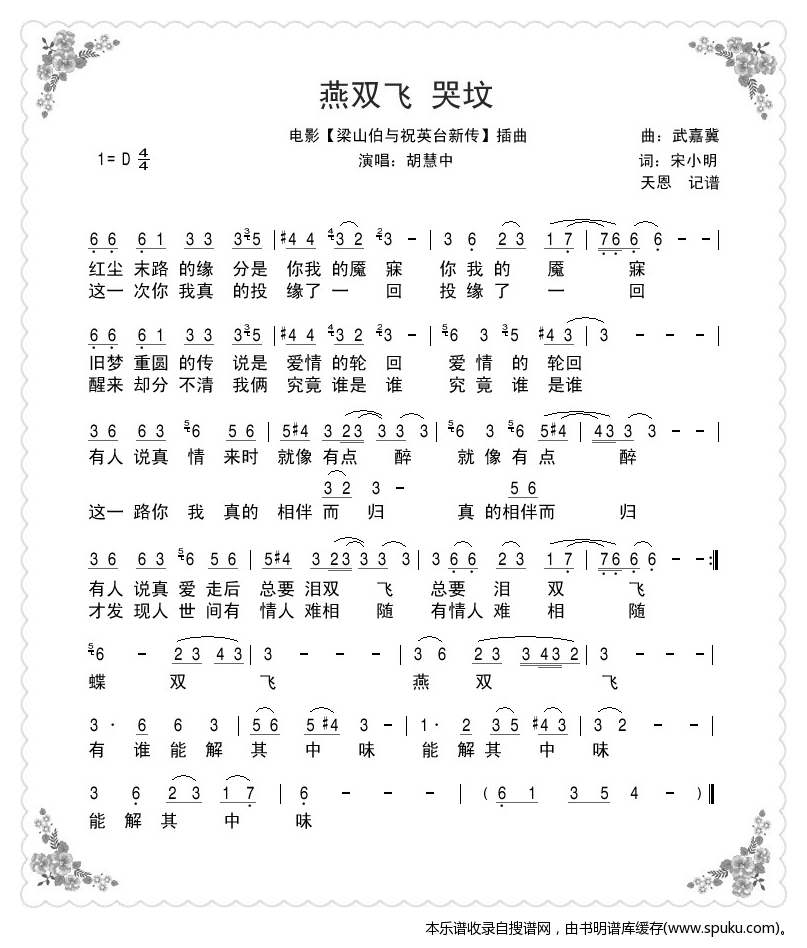 燕双飞 哭坟
电影【梁山伯与祝英台新传】插曲 曲：武嘉冀
1=D 4/4 演唱：胡慧中 词：宋小明
天恩 记谱
6 6 6 1 3 3 3 3 5 | #4 4 4 3 2 2 3 - | 3 6 2 3 1 7 | 7 6 6 6 - - |
红尘 末路 的缘 分是 你我 的魇 寐 你 我 的 魇 寐
这一 次你 我真 的投 缘了 一 回 投 缘 了 一 回
6 6 6 1 3 3 3 3 5 | #4 4 4 3 2 2 3 - | 5 6 3 3 5 #4 3 | 3 - - - |
旧梦 重圆 的传 说是 爱情 的轮 回 爱 情 的 轮回
醒来 却分 不清 我俩 究竟 谁是 谁 究 竟 谁 是谁
3 6 6 3 5 6 5 6 | 5 #4 3 2 3 3 3 | 5 6 3 5 6 5 #4 | 4 3 3 3 - - |
有人 说真 情 来时 就像 有点 醉 就 像 有 点 醉
3 2 3 - 5 6
这一 路你 我 真的 相伴 而 归 真 的相伴而 归
3 6 6 3 5 6 5 6 | 5 #4 3 2 3 3 3 | 3 6 6 2 3 1 7 | 7 6 6 6 - - :‖
有人 说真 爱 走后 总要 泪双 飞 总要 泪 双 飞
才发 现人 世 间有 情人 难相 随 有情人 难 相 随
5 6 - 2 3 4 3 | 3 - - 3 6 | 2 3 3 4 3 2 | 3 - - |
蝶 双 飞 燕 双 飞
3 · 6 6 3 | 5 6 5 #4 3 - | 1 · 2 3 5 #4 3 | 3 2 - - |
有 谁 能 解 其 中 味 能 解 其 中 味
3 6 2 3 1 7 | 6 - - - | ( 6 1 3 5 4 - )‖
能 解 其 中 味
本乐谱收录自搜谱网，由书明谱库缓存(www.spuku.com)。